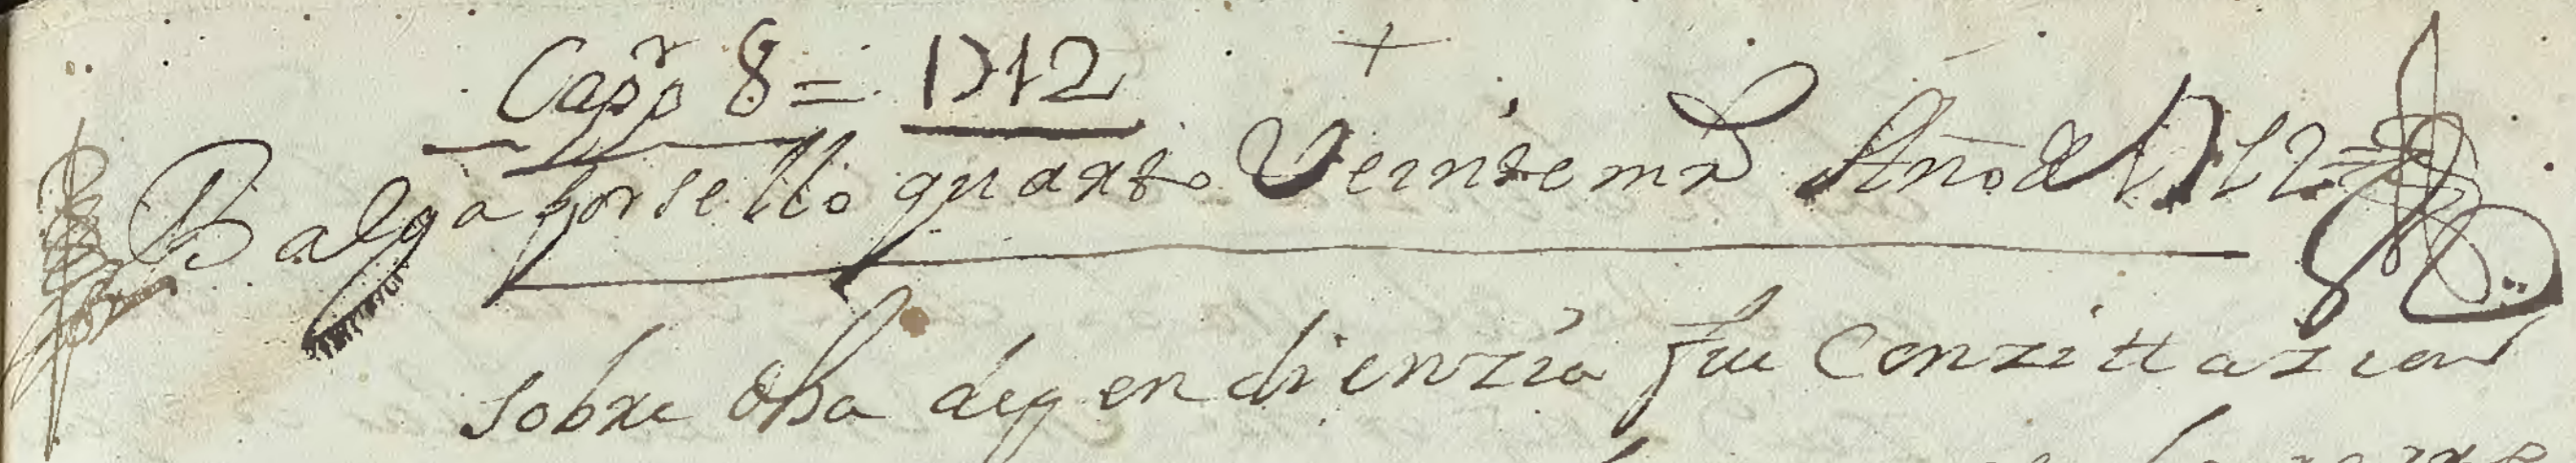 Capp.r 8 = 1712 +
Balga por sello quarto Veinte mrs Año de 1712
sobre dha dependienzia fue Con zittazion